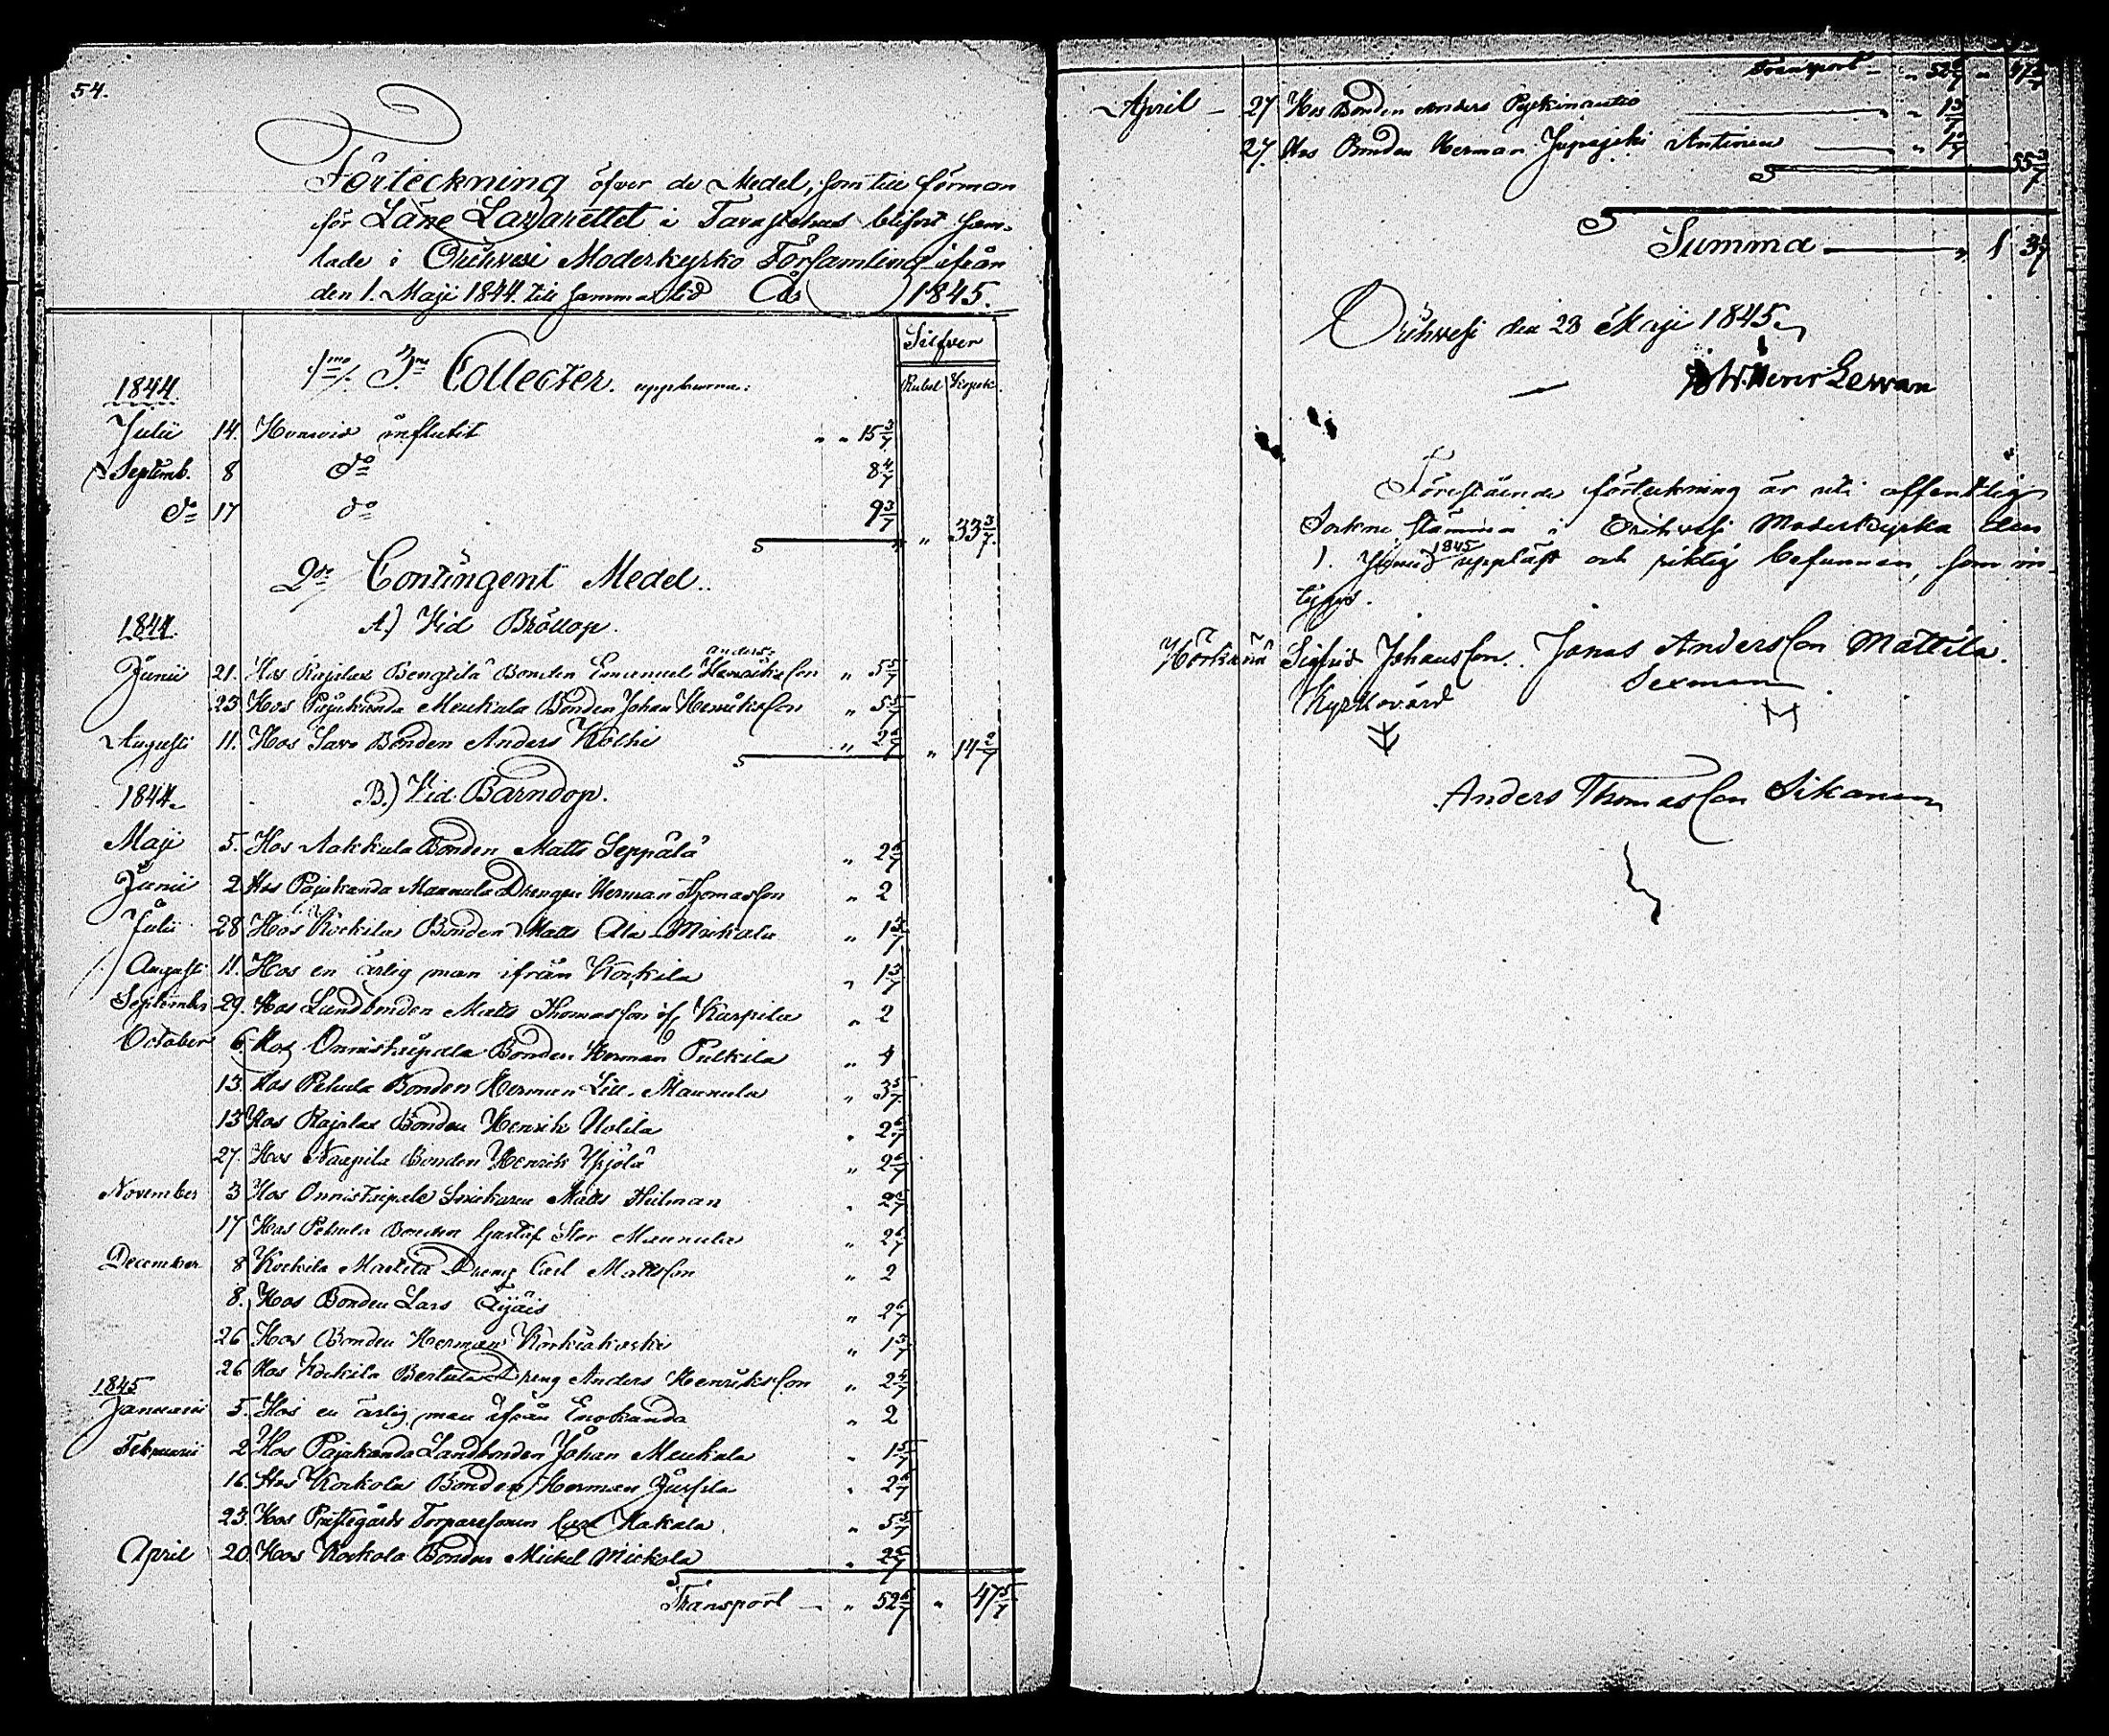 54.
Förteckning öfver de Medel, som till förmon
för Läne Lazarettet i Tavastehus blifvit sam-
lade i Orihvesi Moderkyrko Församling ifrån
den 1. Maji 1844 till samma tid År 1845.
Silfver
1mo Collecter. uppkomna:
Rubel Kopek.
1844.
Julii 14. Hvarvid influtit " " 15 3/7
Septemb. 8 do 8 4/7
do 17 do 9 3/7
" 33 3/7.
2do Contingent Medel.
A.) Vid Bröllop.
1844.
Anders-
Junii 21. Hos Rajalax Bengtilä Bonden Emanuel Henriksson " 5 5/7
23 Hos Pajukanda Meukala Bonden Johan Henriksson " 5 5/7
Augusti 11. Hos Savo Bonden Anders Kölhi " 2 6/7 " 14 2/7
1844. B.) Vid Barndop.
Maji 5. Hos Aakkula Bonden Matts Seppälä " 2 6/7
Junii 2 Hos Pajukanda Mannula Drengen Herman Thomasson " 2
Julii 28 Hos Kockila Bonden Matts Ala Mickala " 1 3/7
Augusti 11. Hos en ärlig man ifrån Korkila " 1 3/7
September 29. Hos Landbonden Matts Thomasson ifr. Karpila " 2
October 6. Hos Onnistaipale Bonden Herman Pulkila " 4
13. Hos Pehula Bonden Herman Lill-Mannula " 3 5/7
13 Hos Rajalax Bonden Henrik Uolila " 2 6/7
27. Hos Naappila Bonden Henrik Ypjölä " 2 6/7
November 3 Hos Onnistaipale Snickaren Matts Hilman " 2 6/7
17 Hos Pehula Bonden Gustaf Stor Mannula " 2 6/7
December 8 Kockila Martila Dreng Carl Mattsson " 2
8. Hos Bonden Lars Äijäis " 2 6/7
26 Hos Bonden Herman Korkiakoski " 1 3/7
26 Hos Kockila Bertula Dreng Anders Henriksson " 2 4/7
1845
Januarii 5. Hos en ärlig man ifrån Enokunda " 2
Februarii 2 Hos Pajukanda Landbonden Johan Meukala " 1 5/7
16. Hos Korkola Bonden Herman Jussila " 2 6/7
23. Hos Prestegårds Torparesonen Carl Hakala " 5 5/7
April 20 Hos Korkola Bonden Mickel Mickola " 2 6/7
Transport " 52 6/7 " 47 5/7
Transport " 52 6/7 " 47 5/7
April 27 Hos Bonden Anders Pyykinautio " 1 3/7
27. Hos Bonden Herman Jupajoki Antinen " 1 55 3/7
Summa " 1 3 1/7
Orihvesi den 28 Maji 1845.
Förestående förteckning är uti offentlig
Sockne stämma i Orihvesi Moderkyrka den
1845
1. uppläst och riktig befunnen, som in-
tygas.
Sigfrid Johansson. Jonas Andersson Mattila.
Kyrkovärd Sexman
Anders Thomasson Sikanen